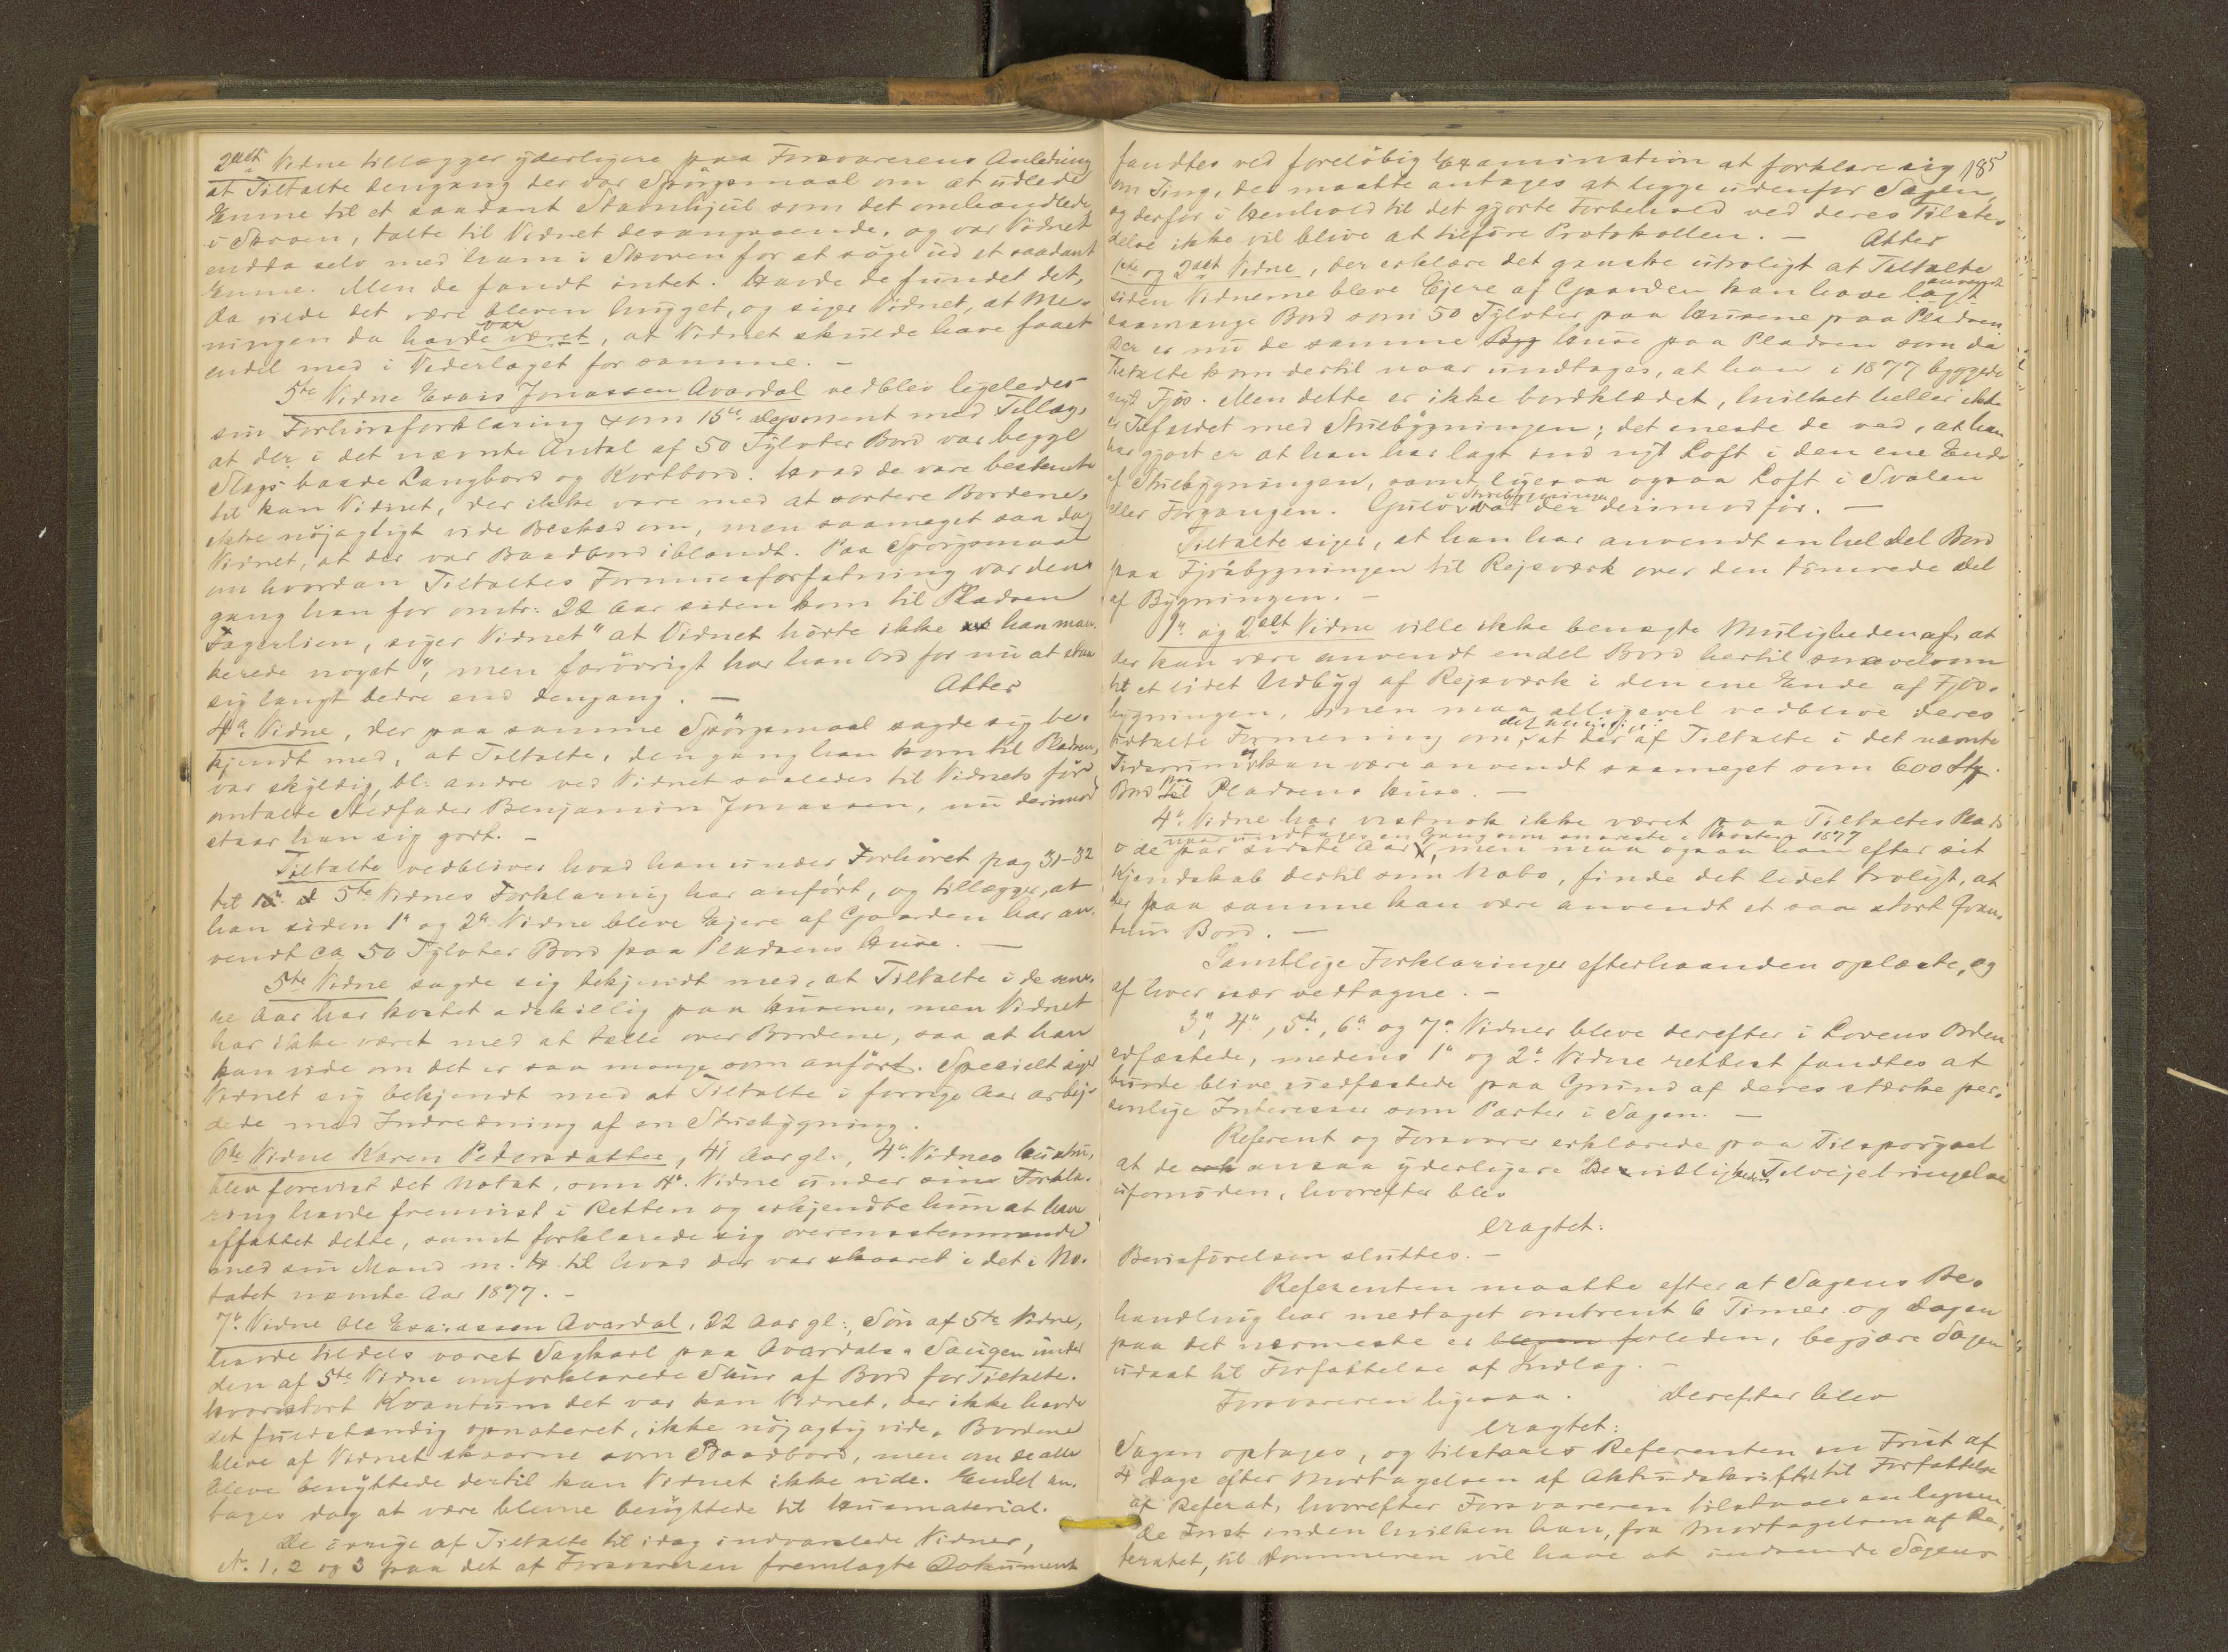 2det Vidne tillægger yderligere paa Forsvarerens Anledning
at Tiltalte dengang der var Spörgsmaal om at udlede
Emne til et saadant Stavnhjul som det omhandlede
i Skoven, talte til Vidnet desangaaende, og var Vidnet
endda selv med ham i Skoven for at söge ud et saadant
Emne. Men de fandt intet. Havde de fundet det,
da vilde det være bleven hugget, og siger Vidnet, at Me-
ningen da havde været var, at Vidnet skulde have faaet
endel med i Vederlaget for samme. -
5te Vidne Esais Jonassen Avardal vedblev ligeledes
sin Forhörsforklaring som 15de deponent med Tillæg,
at der i det nævnte Antal af 50 Tylvter Bord var begge
Slags baade Langbord og Kortbord. Hvad de vare bestemte
til kan Vidnet, der ikke vare med at sortere Bordene,
ikke nöjagtigt vide Besked om, men saameget saa dog
Vidnet, at der var Baadbord iblandt. Paa Spörgsmaal
om hvordan Tiltaltes Formuesforfatning var den-
gang han for omtr: 22 Aar siden kom til Pladsen
Fagerlien, siger Vidnet "at Vidnet hörte ikke at han man-
kerede noget", men forövrigt har han Ord for nu at staa
sig langt bedre end dengang. - Atter
4de Vidne, der paa samme Spörgsmaal sagde sig be-
kjendt med, at Tiltalte, dengang han kom til Pladsen,
var skyldig, bl: andre ved Vidnet saaledes til Vidnets för
omtalte Stedfader Benjamin Jonassen, nu derimod
staar han sig godt. -
Tiltalte vedbliver hvad han under Forhöret pag 31-32
til 5te Vidnes Forklaring har anfört, og tillægger, at
han siden 1ste og 2det Vidne bleve Ejere af Gaarden har an-
vendt ca 50 Tylvter Bord paa Pladsens Huse. -
5te Vidne sagde sig bekjendt med, at Tiltalte i de sene-
re Aar har kostet adskillig paa Husene, men Vidnet
har ikke været med at tælle over Bordene, saa at han
kan vide om det er saa mange som anfört. Specielt siger
Vidnet sig bekjendt med at Tiltalte i forrige Aar arbej-
dede med Indredning af en Stuebygning.
6te Vidne Karen Pedersdatter, 41 Aar gl., 4de Vidnes Hustru,
blev forevist det Notat, som 4de Vidne under sin Forkla-
ring havde fremvist i Retten og erkjendte hun at have
affattet dette, samt forklarede sig overensstemmende
med sin Mand m. H. til hvad der var skaaret i det i No-
tatet nævnte Aar 1877. -
7de Vidne Ole Esaiassen Avardal, 22 Aar gl:, Sön af 5te Vidne,
havde tildels været Sagkarl paa Avardals Saugen under
den af 5te Vidne omforklarede Skur af Bord for Tiltalte.
Hvorstort Kvantum det var kan Vidnet, der ikke havde
det fuldstændig opnoteret, ikke nöjagtig vide. Bordene
bleve af Vidnet skaarne som Baadbord, men om de alle
bleve benyttede dertil kan Vidnet ikke vide. Endel an-
tages dog at være blevne benyttede til Husmaterial.
De övrige af Tiltalte til idag indvarslede Vidner,
No 1, 2 og 3 paa det af Forsvareren fremlagte Dokument
185
fandtes ved forelöbig Examination at forklare sig
om Ting, der maatte antages at ligge udenfor Sagen,
og derfor i Henhold til det gjorte Forbehold ved deres Tilste-
delse ikke vil blive at tilföre Protokollen. - Atter
1ste og 2det Vidne, der erklære det ganske utroligt at Tiltalte
siden Vidnerne bleve Ejere af Gaarden kan have lagt anvendt
saamange Bord som 50 Tylvter paa Husene paa Pladsen.
Der er nu de samme Byg Huse paa Pladsen som da
Tiltalte kom dertil naar undtages, at han i 1877 byggede
nyt Fjös. Men dette er ikke bordklædet, hvilket heller ikke
er Tilfældet med Stuebygningen; det eneste de ved, at han
har gjort er at han har lagt ind nyt Loft i den ene Ende
af Stuebygningen, samt ligesaa ogsaa Loft i Svalen
eller Forgangen. Gulv i Stuebygningen var der derimod för. -
Tiltalte siger, at han har anvendt en hel del Bord
paa Fjösbygningen til Rejsværk over den tömrede Del
af Bygningen. -
1ste og 2det Vidne ville ikke benægte Muligheden af, at
der kan være anvendt endel Bord hertil saavelsom
til et lidet Udbyg af Rejsværk i den ene Ende af Fjös-
bygningen, men maa alligevel vedblive deres
udtalte Formening om, at der af Tiltalte i det nævnte
Tidsrum kan være anvendt saameget som 600 Stk
Bord til paa Pladsens Huse. -
4de Vidne har vistnok ikke været paa Tiltaltes Plads
naar undtages en Gang som snareste i Hösten 1877
i de par sidste Aar, men maa ogsaa han efter sit
Kjendskab dertil som Nabo, finde det lidet troligt, at
der paa samme kan være anvendt et saa stort Qvan-
tum Bord. -
Samtlige Forklaringer efterhaanden oplæste, og
af hver især vedtagne. -
3die, 4de, 5te, 6te og 7de Vidner bleve derefter i Lovens Orden
edfæstede, medens 1ste og 2det Vidne rettest fandtes at
burde blive uedfæstede paa Grund af deres stærke per-
sonlige Interesser som Parter i Sagen. -
Referent og Forsvarer erklærede paa Tilspörgsel
at de ansaa yderligere Bevisligheders Tilvejebringelse
ufornöden, hvorefter blev
eragtet:
Bevisförelsen sluttes. -
Referenten maatte efter at Sagens Be-
handling har medtaget omtrent 6 Timer og Dagen
paa det nærmeste er bleven forleden, begjære Sagen
udsat til Forfattelse af Indlæg. -
Forsvareren ligesaa. Derefter blev
eragtet:
Sagen optages, og tilstaaes Referenten en Frist af
4 Dage efter Modtagelsen af Aktudskriftet til Forfattelse
af Referat, hvorefter Forsvareren tilstaaes en lignen-
de Frist inden hvilken han, fra Modtagelsen af Re-
feratet, til Dommeren vil have at indsende Sagens